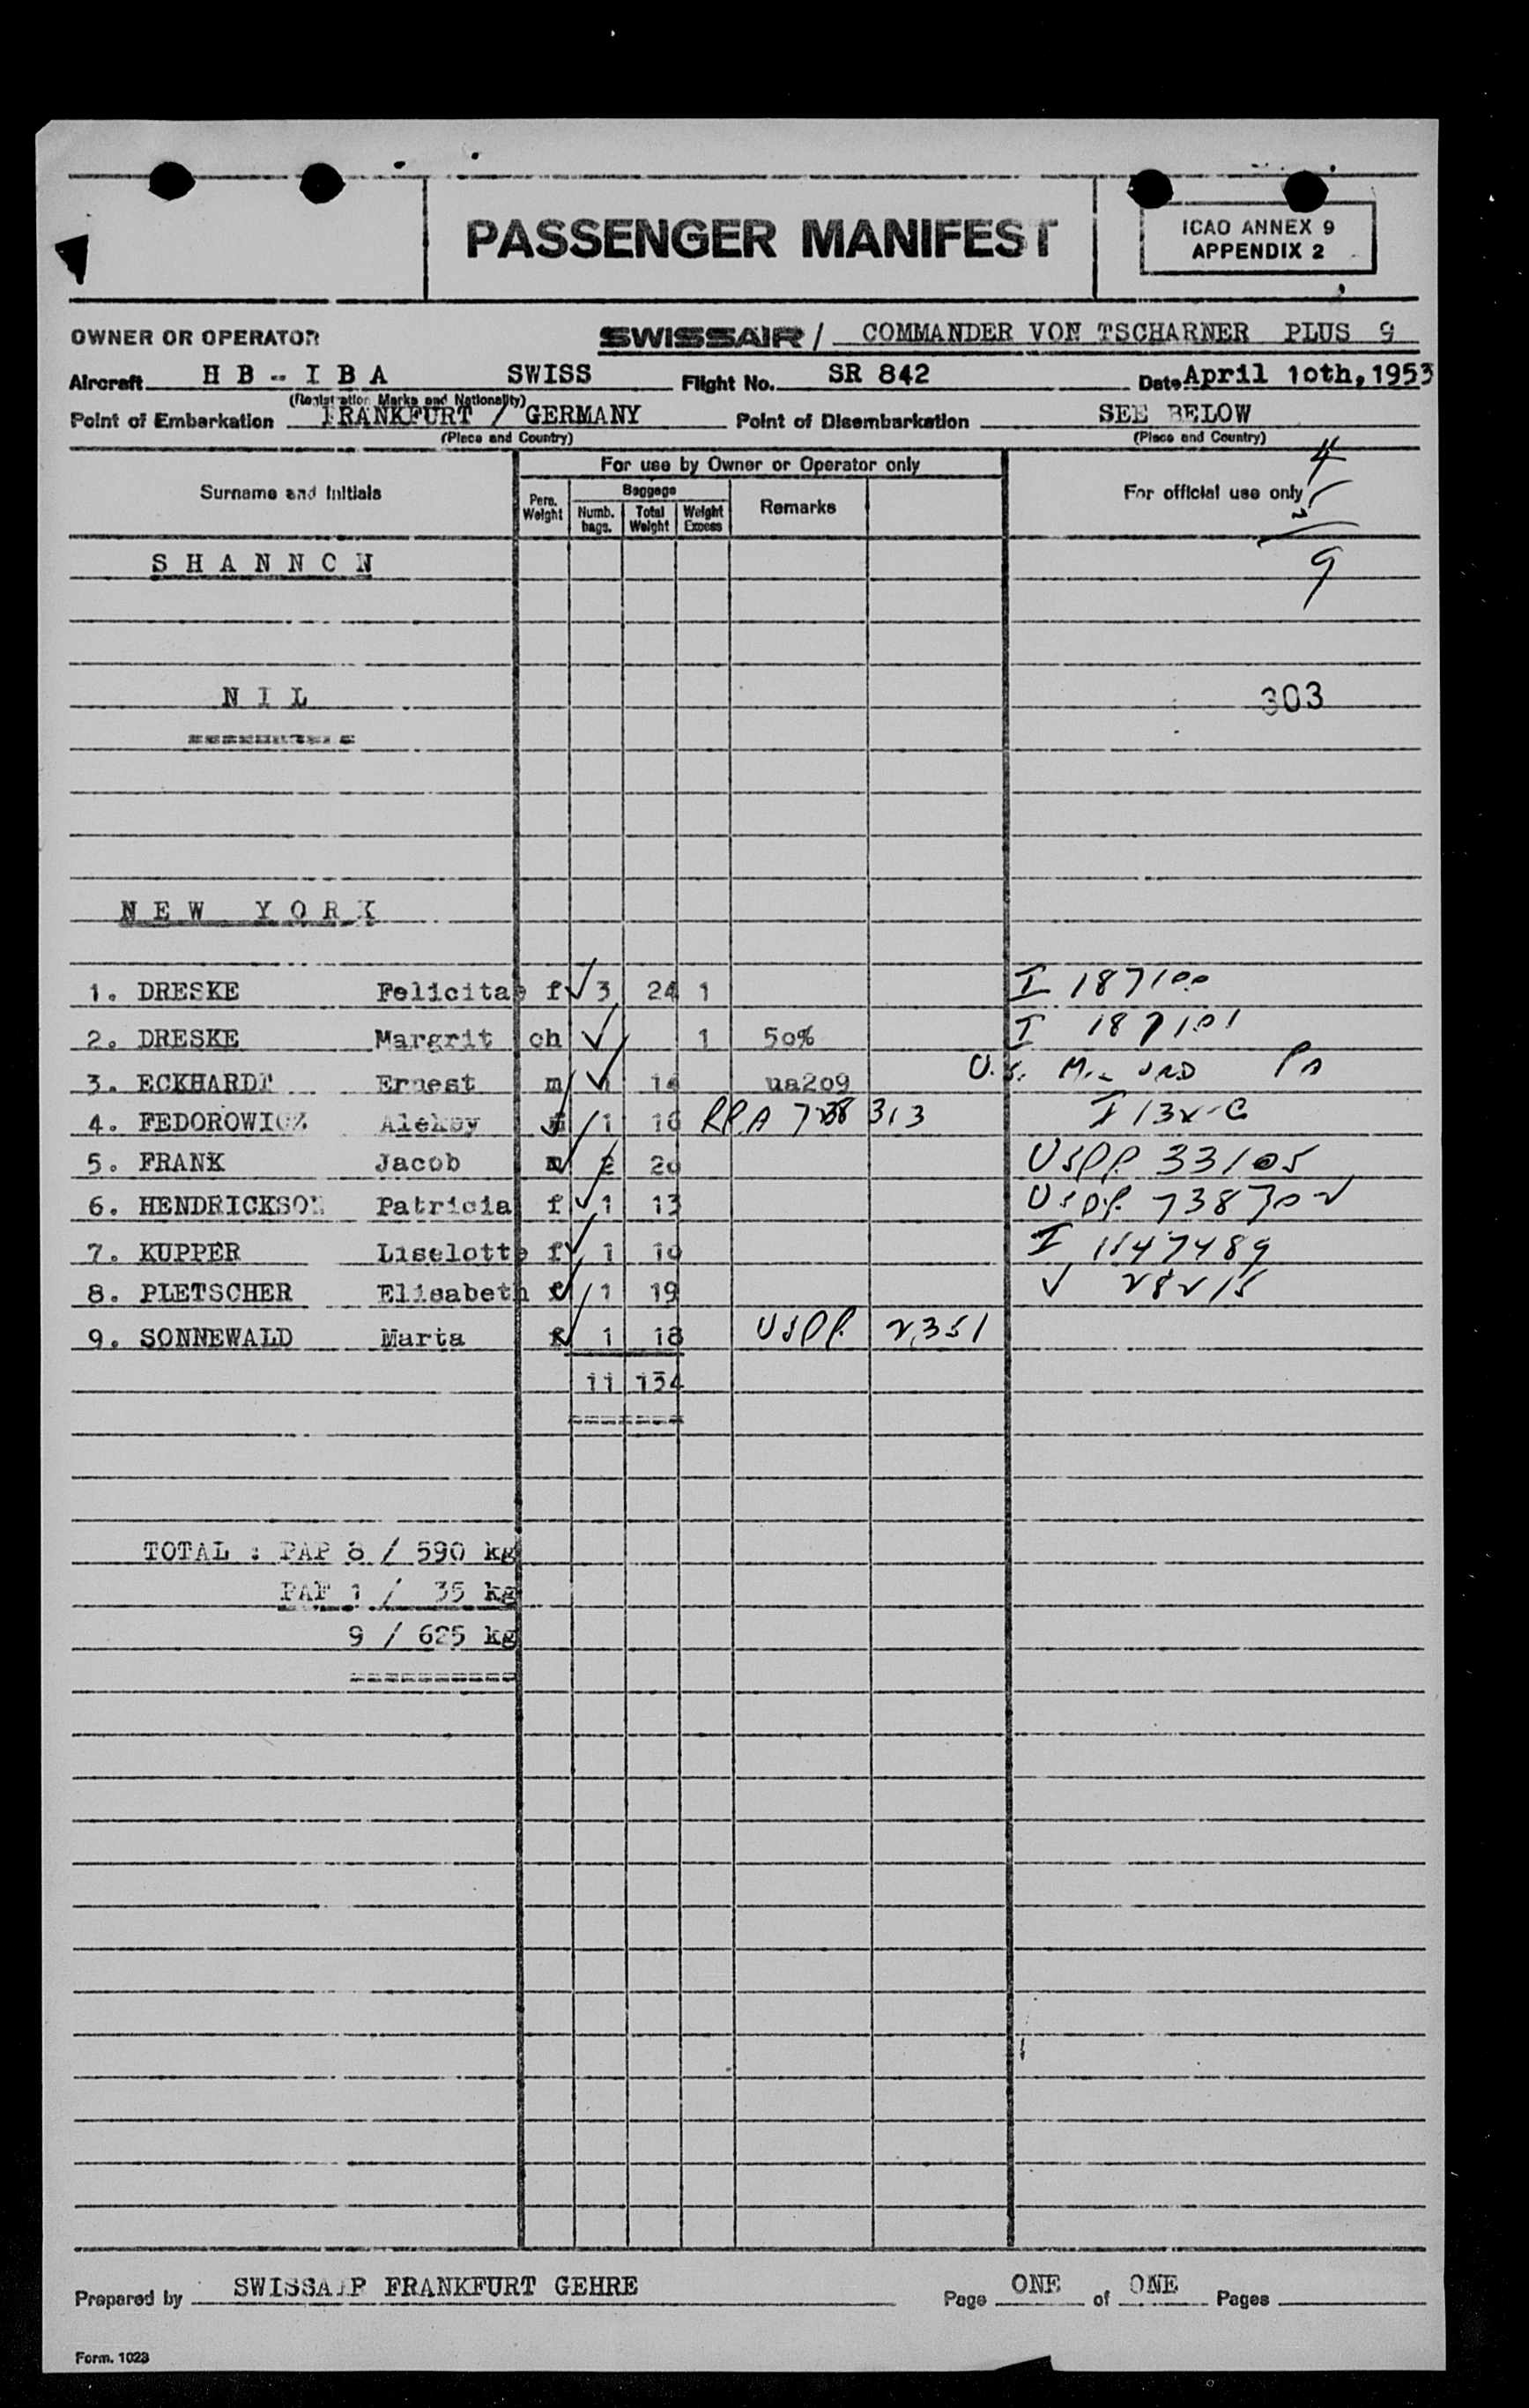 PASSENGER MANIFEST
ICAO ANNEX 9
APPENDIX 2
OWNER OR OPERATOR SWISSAIR / COMMANDER VON TSCHARNER PLUS 9
Aircraft H B - I B A SWISS Flight No. SR 842 Date April 10th, 1953
(Registration Marks and Nationality)
Point of Embarkation FRANKFURT / GERMANY Point of Disembarkation SEE BELOW
(Place and Country) (Place and Country)
For use by Owner or Operator only
4
Surname and Initials Pers. Weight Baggage Remarks For official use only 5
Numb. bags. Total Weight Weight Excess
S H A N N O N 9
N I L 303
N E W Y O R K
1. DRESKE Felicitas f 3 24 1 I 187100
2. DRESKE Margrit ch 1 50% I 187101
3. ECKHARDT Ernest m 1 14 ua209 U.S.
4. FEDOROWICZ Aleksy 1 16 313
5. FRANK Jacob m 2 20 USPP. 33105
6. HENDRICKSON Patricia f 1 13 USPP. 738702
7. KUPPER Liselotte f 1 10 I 1147489
8. PLETSCHER Elisabeth f 1 19 V 28215
9. SONNEWALD Marta f 1 18 USPP. 2351
11 134
TOTAL : PAP 8 / 590 kg
PAF 1 / 35 kg
9 / 625 kg
Prepared by SWISSAIR FRANKFURT GEHRE Page ONE of ONE Pages
Form. 1023